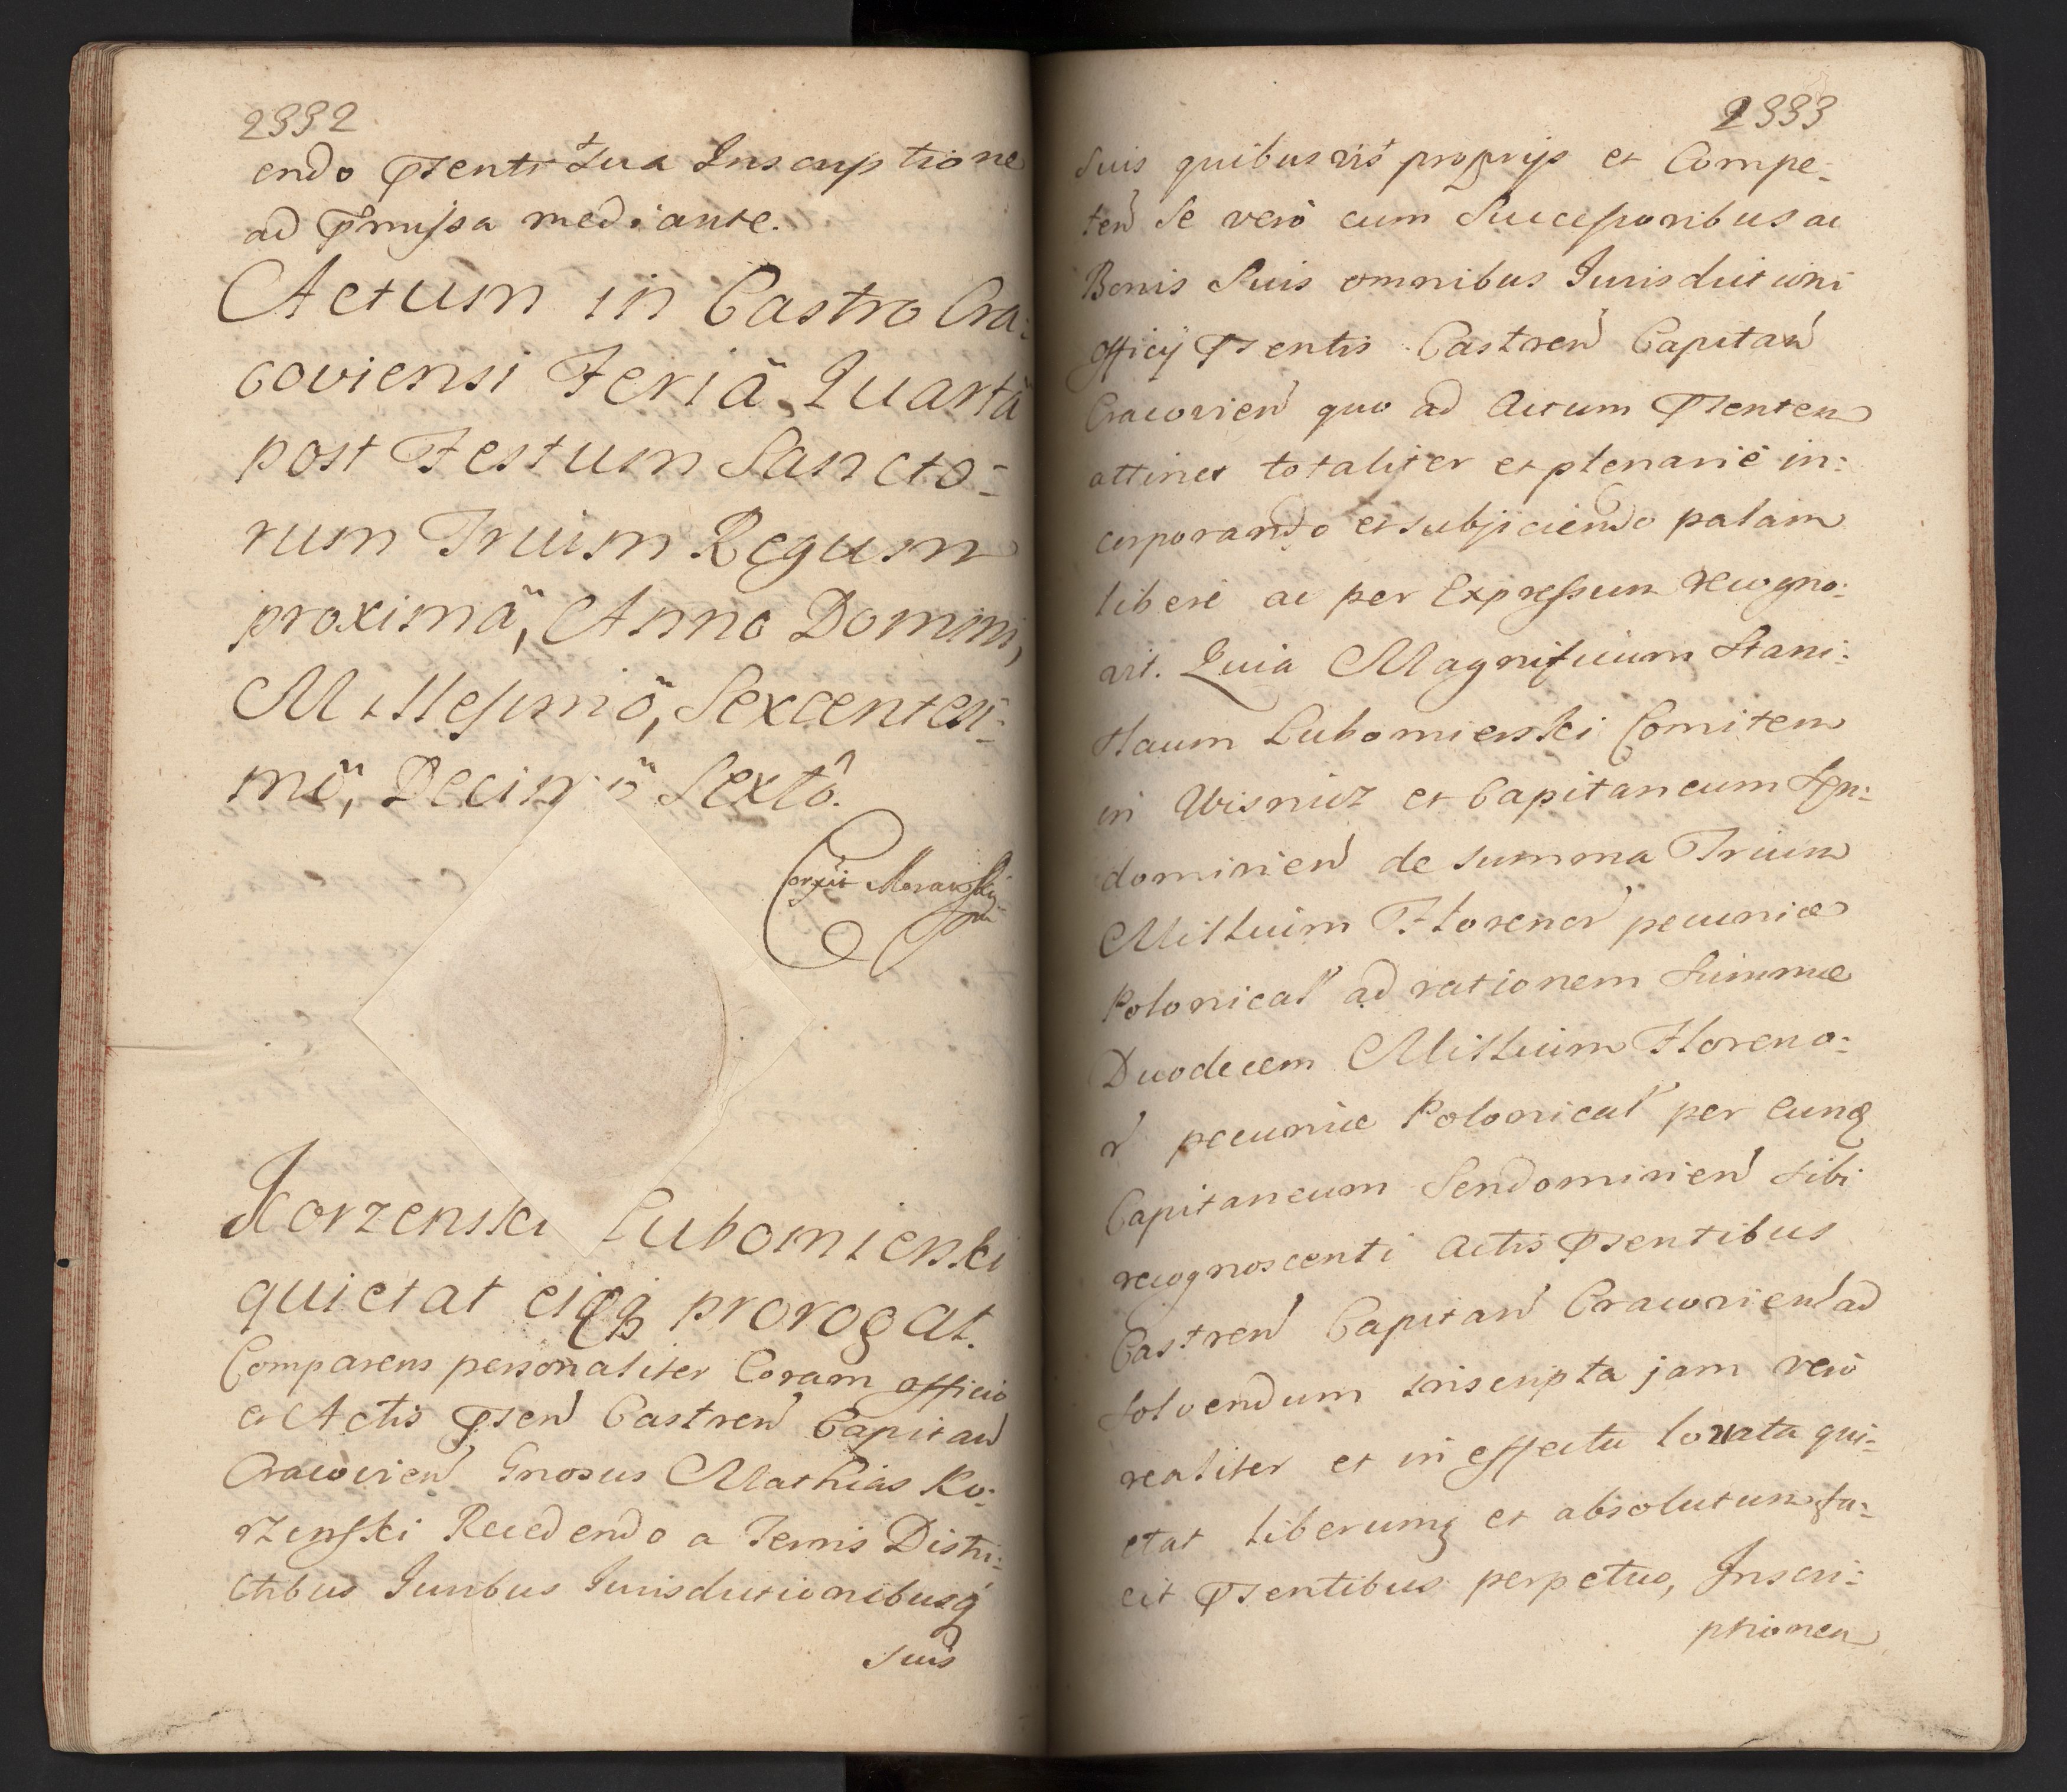 2332
endo Pñenti sua Inscriptione
ad Pñmissa mediante.
Actum in Castro Cra:
coviensi Feriâ Quartâ
post Festum Sancto:
rum Trium Regum
proximâ, Anno Domini,
Millesimô, Sexcentesi:
mô, Decimô Sextô.
Corxit Morawski
mp
Korzenski Lubomierski
quietat eiq3 prorogat.
Comparens personaliter Coram officio
et Actis Pñsen Castren Capitan
Cracovien Gnosus Mathias Ko:
rzenski Recedendo a Terris Distri:
ctibus Juribus Jurisdictionibusq
suis
2333
suis quibusvis proprijs et Compe:
ten Se verò cum Successoribus ac
Bonis Suis omnibus Jurisdictioni
Officij Pñsentis Castren Capitan
Cracovien quo ad Actum Pñsentem
attinet totaliter et plenariè in:
corporando et subjiciendo palam
liberè ac per Expressum recogno:
vit. Quia Magnificum Stani:
slaum Lubomierski Comitem
in Wisnicz et Capitaneum Sen:
domirien de summa Trium
Millium Floren pecuniæ
Polonical ad rationem Summæ
Duodecem Millium Floreno:
r pecuniæ Polonical per eunq
Capitaneum Sendomirien sibi
recognoscenti Actis Pñsentibus
Castren Capitan Cracovien ad
solvendum inscripta jam verò
realiter et in effectu levata qui:
etat liberumq et absolutum fa:
cit Pñsentibus perpetuo, Inscri:
ptionem